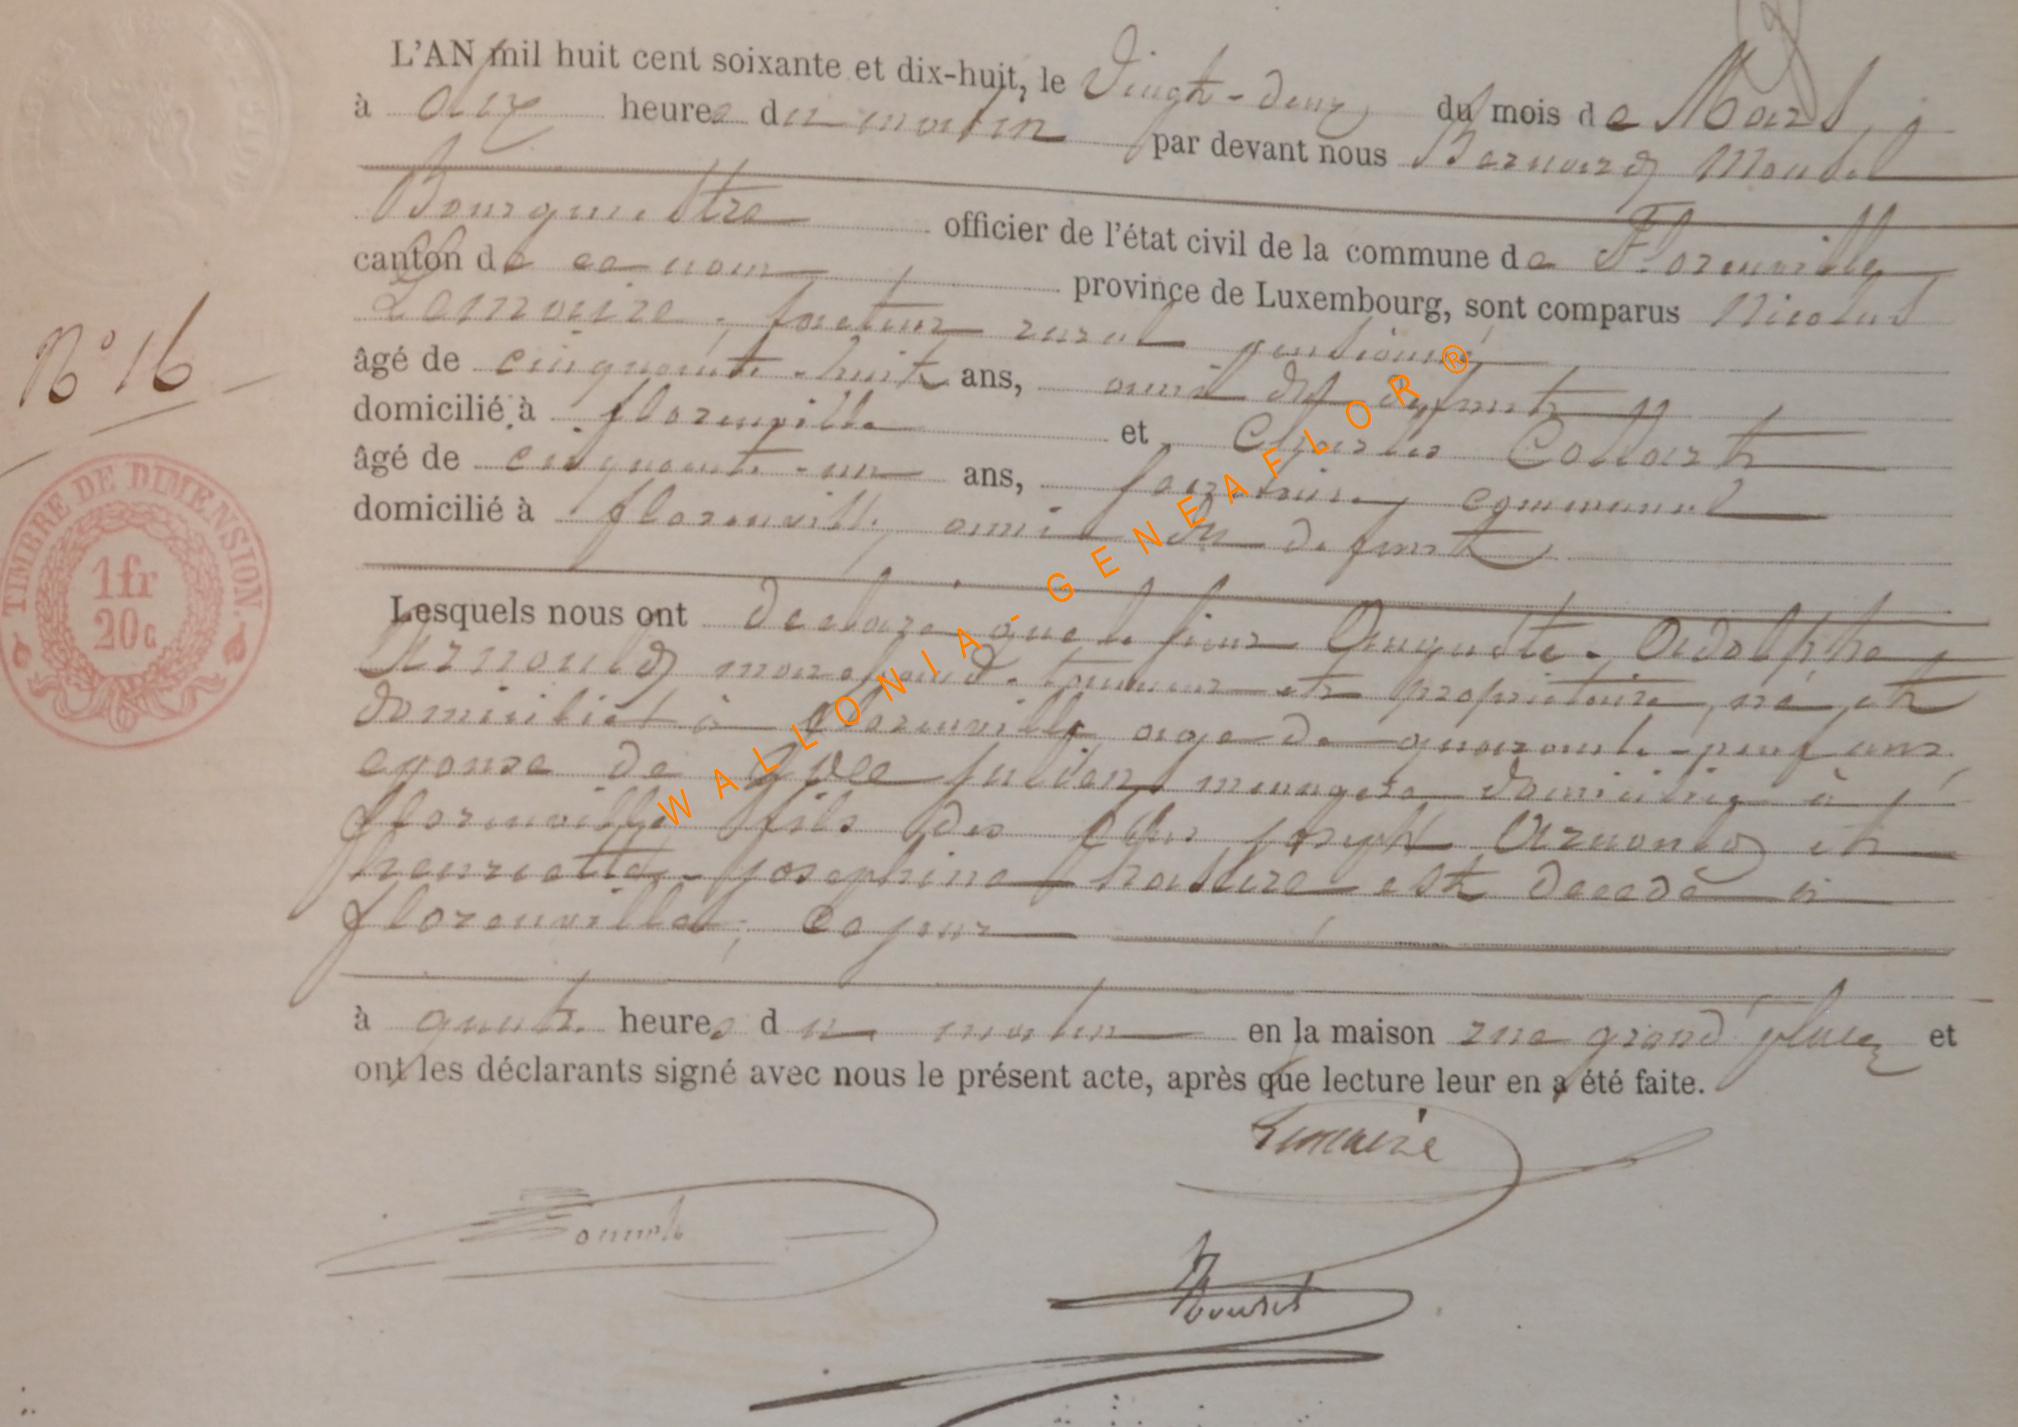 L'AN mil huit cent soixante et dix-huit, le Vingt-deux du mois de Mars
à dix heures du matin par devant nous Bernard
Bourgmestre officier de l'état civil de la commune de Florenville
canton de ce nom province de Luxembourg, sont comparus Nicolas
Lemaire, facteur rural pensionné
âgé de cinquante-huit ans, ami du defunt
domicilié à florenville et Charles Collart
âgé de cinquante-un ans, secretaire communal
domicilié à florenville, ami du defunt
N° 16
TIMBRE DE DIMENSION.
1fr
20c
Lesquels nous ont declaré que le sieur Auguste-Adolphe
Arnould, marchand-tanneur et propriétaire, né et
domicilié à florenville agé de quarante-neuf ans
epouse de menagere domiciliée à
florenville fils des Joseph Arnould et
henriette-josephine est decedé à
florenville, ce jour
à quatre heures du matin en la maison rue grand'place et
ont les déclarants signé avec nous le présent acte, après que lecture leur en a été faite.
Lemaire
WALLONIA-GENEAFLOR®